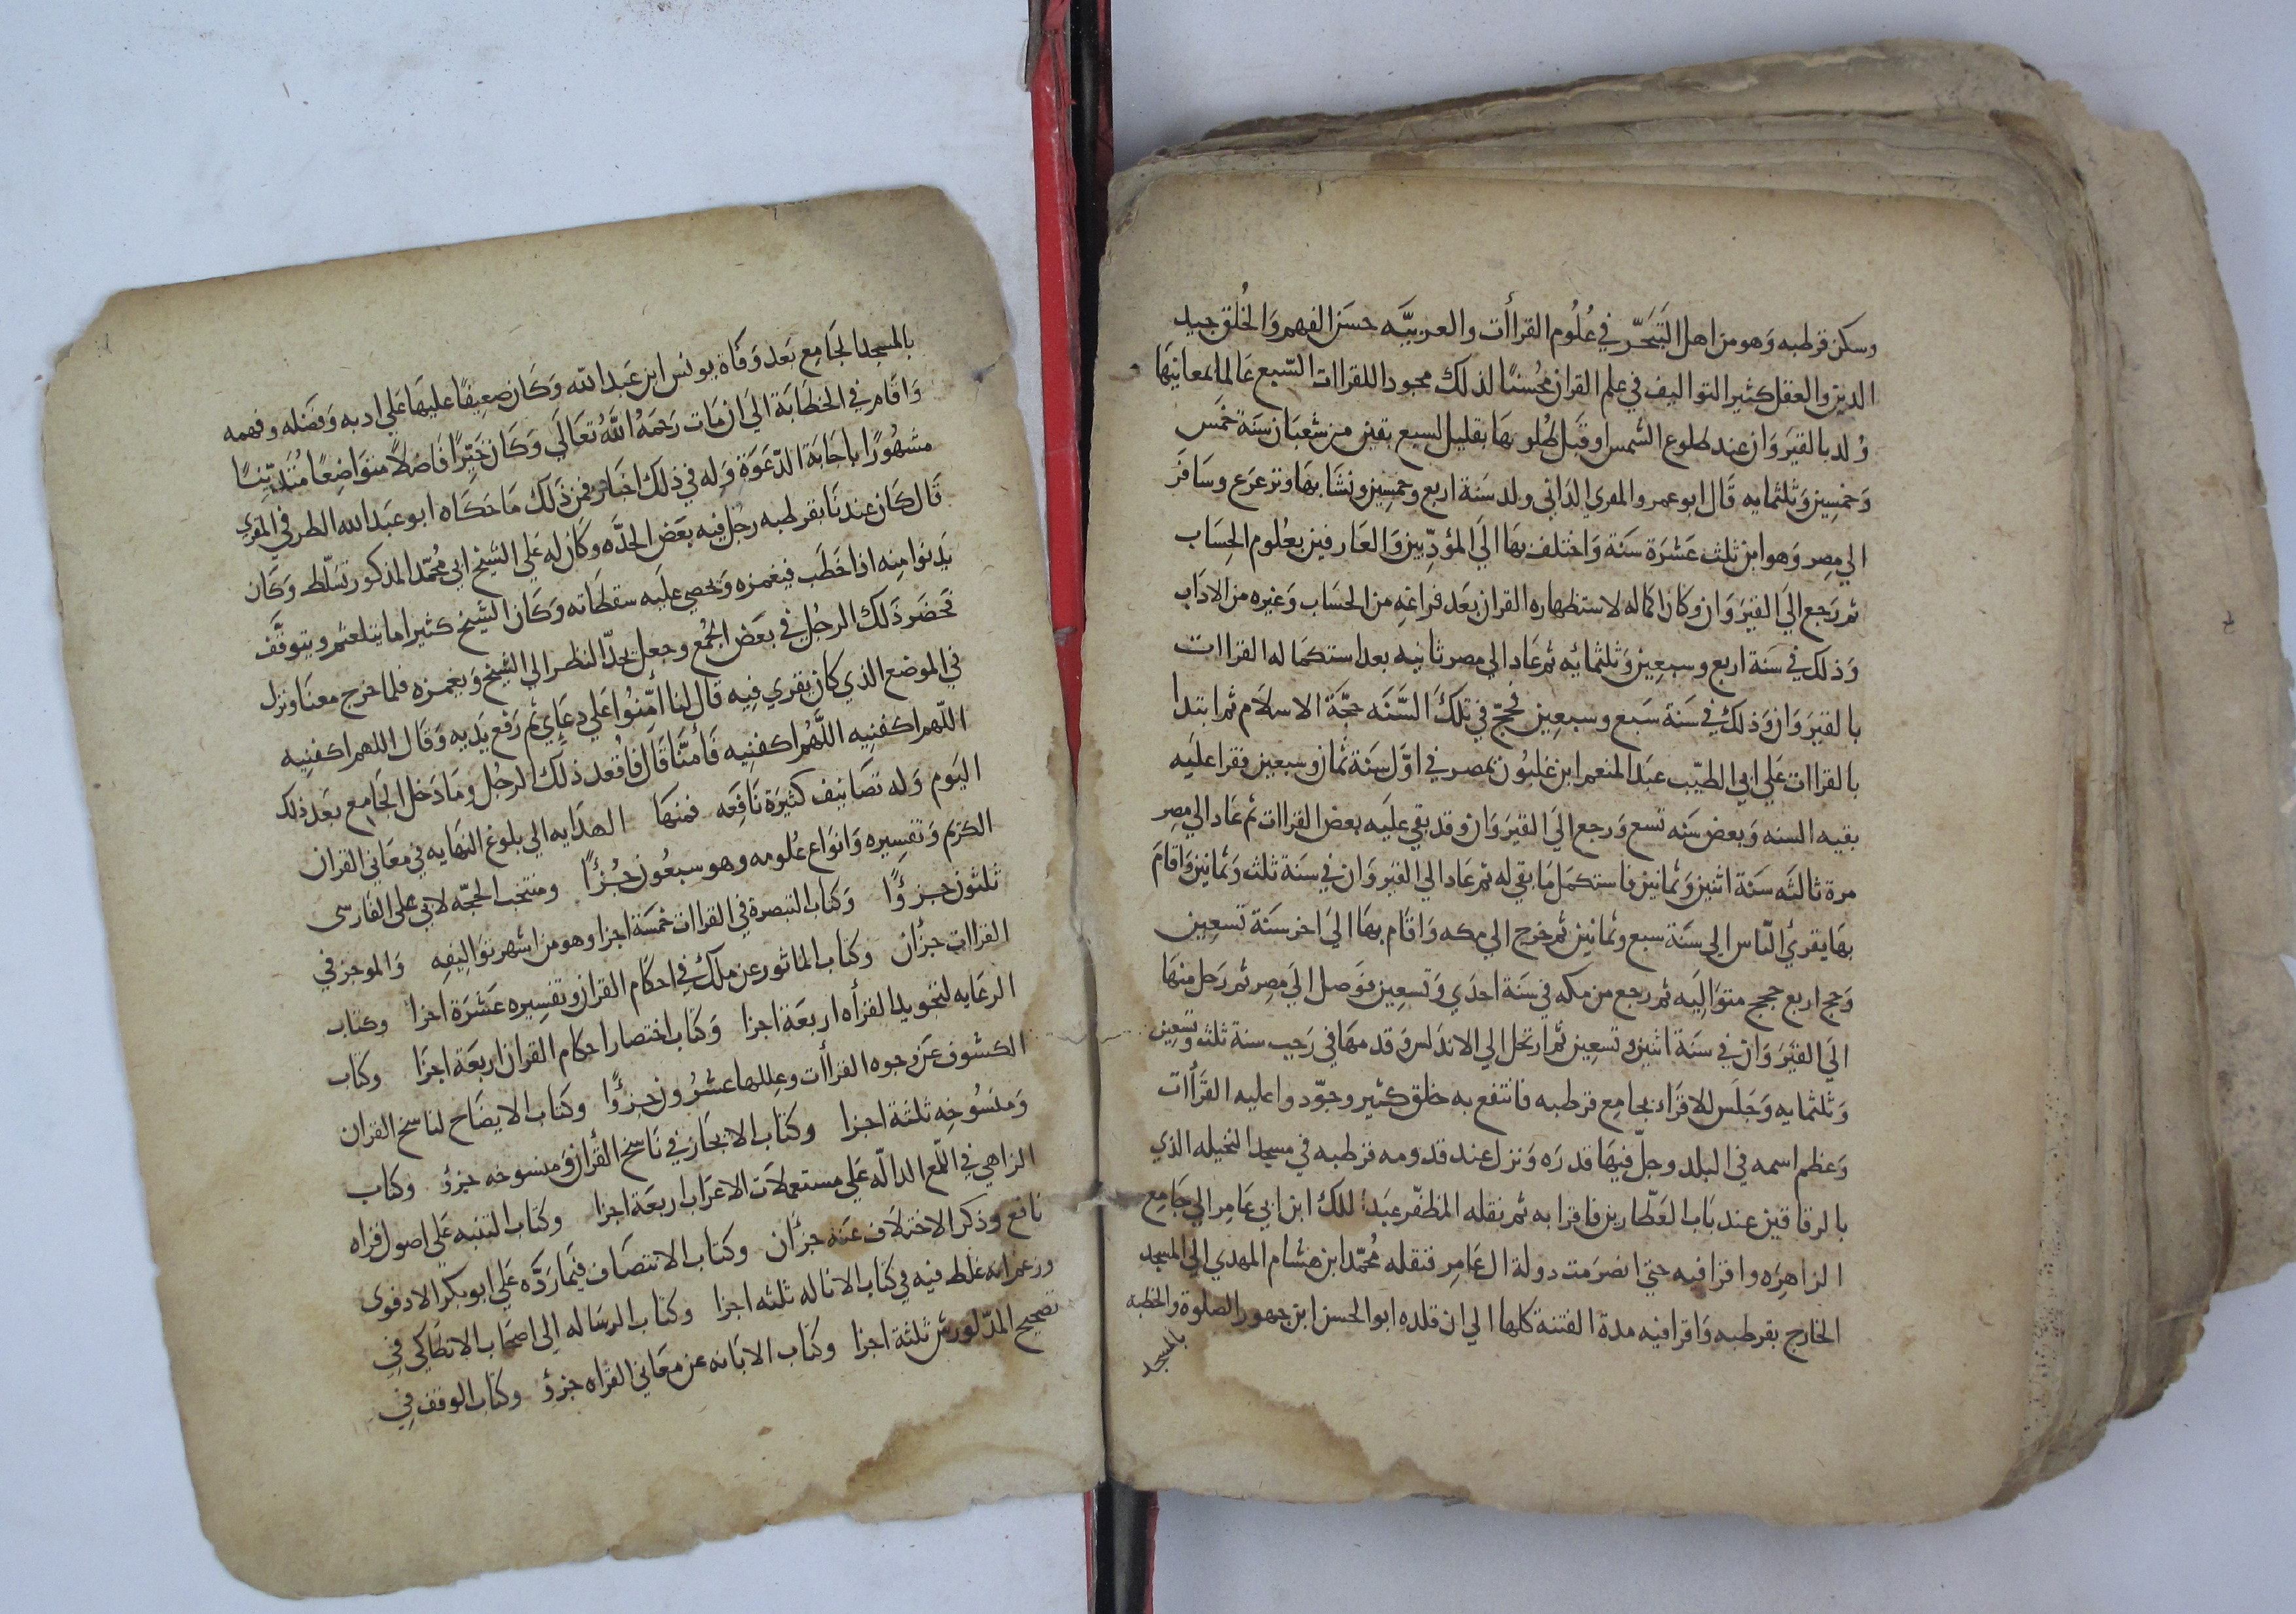 وسكن قرطبه وَهو من اهل التَبَحّر في عُلُوم القراأت والعربيَّه حسَن الفهم وَالخُلق جيد
الدين والعقل كثير التواليف في علم القران مُحسنًا لذلك مجودا للقراات السّبع عَالما بمعانيهَا
وُلد بالقيرَوَان عند طلوع الشمس او قبَل طُلوعهَا بقليل لسبع بقين من شعبَان سَنَة خَمَس
وَخمسِين وَثلثمايه قَال ابو عمرو المقري الدَاني ولد سَنَة اربع وخمسِين ونشَا بهَا وترعرَع وسَافَر
الي مِصر وَهو ابن ثلث عَشرَة سَنَة وَاختلف بهَا الَي المؤدّبين وَالعَارفين بعُلوم الحِسَاب
ثم رَجع الَي القيرَوَان وكان اكماله لاستظهاره القران بعَد فراغه من الحسَاب وَغيره من الادَاب
وَذلك في سَنَة اربع وسبعِين وَثلثمائه ثم عَاد الي مصر ثانيه بعد استكمَاله القراات
بالقيرَوَان وَذلك في سَنَة سَبع وسبعِين فحجّ في تلكَ السَّنَه حجّة الاسلام ثم ابتدا
بالقراات عَلي ابي الطيّب عبَد المنعم ابن غلبُون بمصر في اوّل سَنَة ثمان وسبعين فقرا علَيه
بقيه السنه وَبعض سَنَه تسع وَرجع الَي القيرَوَان وقد بقي علَيه بعض القراات ثم عَاد الي مِصر
مرة ثالثَه سَنَة اثنين وَثمانين فاستكمَل مَا بقي له ثم عَاد الي القيروَان في سنة ثلث وَثمانين وَاقامَ
بهَا يقرئ النّاس الي سَنَة سبع وثمانين ثم خرج الي مكه وَاقَام بهَا الَي اخر سَنَة تسعِين
وَحج اربع حجج متوَاليَه ثم رجع من مكه في سَنَة احدَي وَتسعِين فوَصل الَي مِصر ثم رَحل منهَا
الَي القيَرَوَان في سَنَة اثنين وتسعِين ثم ارتحل الي الاندَلس وَقدمهَا في رَجب سنة ثلث وتسعِين
وَثلثمايه وَجَلَس للاقرَاء بجَامع قرطبه فانتفع به خلق كثير وجوّدوا عليه القرَأات
وَعظم اسمه في البلد وجلّ فيهَا قدرَه وَنزل عند قدومه قرطبه في مسجد النخيله الذي
بالرقاقين عند بَاب العَطّارين فاقرا به ثم نقله المظفّر عبَد الملك ابن ابي عَامِر الي جَامِع
الزاهِرَه واقرا فيه حتي انصَرَمت دولة ال عَامِر فنقله مُحمّد ابن هشام المهدي الي المسجد
الخارج بقرطبه وَاقرا فيه مدة الفتنة كلها الي ان قلده ابو الحسن ابن جهور الصلوة والخطبه
بالمسجد
بالمسجد الجَامِع بَعد وَفَاة يونس ابن عَبد الله وَكَان ضعِيفًا عليهَا عَلي ادبه وَفضَله وفهمه
وَاقَام في الخطَابَة الي ان مَات رَحمَهُ اللَّهُ تعَالَي وَكَان خَيّرًا فَاضلاً متوَاضِعًا مُتَديّنًا
مشهُورًا باجَابَة الدّعَوَة وَله في ذلك اخبَار فمن ذَلك مَا حَكَاه ابو عبَد الله الطرفي المقري
قَال كَان عند نَا بقرطبه رجُل فيه بعَض الحدَّه وكَان له عَلي الشَيخ ابي مُحمّد المذكور تسَلّط وَكَان
يَدنوا منه اذا خَطَب فيغمزه وَيحصي علَيه سقطَاته وَكَان الشيخ كثيرا ما يتلعثم ويتوقَّف
فحَضَر ذَلك الرجُل في بعَض الجُمع وجعل يحدّ النظر الي الشيخ وَيغمزه فلما خرج معنَا ونزل
في الموضع الذي كان يقري فِيه قَال لنا امِّنوُا عَلي دعَاِي ثم رَفع يَديه وَقَال اللهم اكفنِيه
اللّهم اكفنِيه اللَّهُم اكفنِيه فَأمنَّا قَال فاقعد ذلَك الرجُل وَمَا دَخل الجَامِع بعَد ذلك
اليَوم وَله تصَانيف كثيَرَة نَافِعَه فمنهَا الهدَايه الي بلوغ النهَايه في معَاني القران
الكرَيم وَتفسِيره وَانوَاع عُلومه وهو سبعُون جُزءًا ومنتخب الحجّه لابي علي الفَارسى
ثلثون جزءًا وَكتاب التبصرة في القراات خمسَة اجزا وهو من اشهر توَاليفِه وَالموجز في
القراات جزأن وكتاب الماثور عن ملك في احكام القران وتفسِيره عَشرَة اجزا وكتاب
الرعَايه لتجويد القرأه اربعَة اجزا وَكتَاب اختصار احكام القران اربعَة اجزَا وكتاب
الكشوف عَن وجوه القراأت وعِللها عشرُون جزءًا وكتَاب الايضَاح لناسخ القران
وَمنسُوخِه ثلثة اجزا وكتَاب الايجَاز في نَاسخ القرأن وَمنسوخه جزؤ وكتاب
الزاهِي في اللُمع الدالّه عَلي مستعملَات الاعرَاب اربعَة اجزا وكتَاب التنبيه عَلي اصول قراه
نافع وَذكر الاختلَاف عَنه جزأن وكتاب الانتصَاف فيمَا ردَّه عَلي ابو بكر الادفوى
وزعم انه غلط فيه في كتاب الاناله ثلثه اجزا وكتَاب الرسَاله الي اصحَاب الانطَاكِي في
تصحيح المدّ لورش ثلثة اجزا وكتَاب الابَانه عن معَاني القرَاه جزؤ وكتاب الوقف في